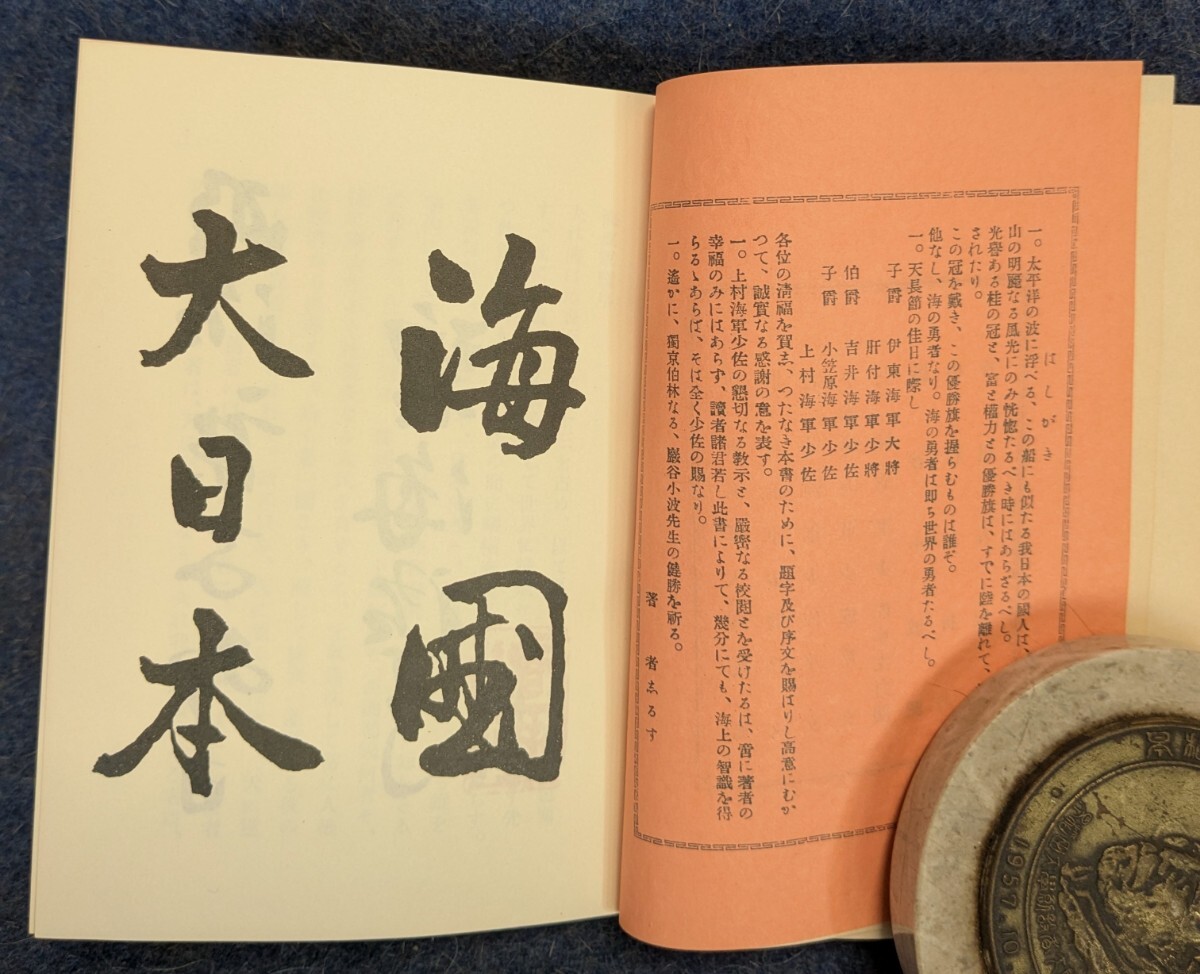 はしがき
一。太平洋の波に浮べる、この船にも似たる我日本の國人は、
山の明麗なる風光にのみ恍惚たるべき時にはあらざるべし。
光譽ある桂の冠と、富と權力との優勝旗は、すでに陸を離れて、
されたり。
この冠を戴き、この優勝旗を握らむものは誰ぞ。
他なし、海の勇者なり。海の勇者は即ち世界の勇者たるべし。
一。天長節の佳日に際し
子爵 伊東海軍大將
肝付海軍少將
伯爵 吉井海軍少佐
子爵 小笠原海軍少佐
上村海軍少佐
各位の淸福を賀志、つたなき本書のために、題字及び序文を賜はりし高意にむか
つて、誠實なる感謝の意を表す。
一。上村海軍少佐の懇切なる敎示と、嚴密なる校閲とを受けたるは、啻に著者の
幸福のみにはあらず、讀者諸君若し此書によりて、幾分にても、海上の智識を得
らるゝあらば、そは全く少佐の賜なり。
一。遙かに、獨京伯林なる、巖谷小波先生の健勝を祈る。
著者志るす
海國
大日本
1957.10